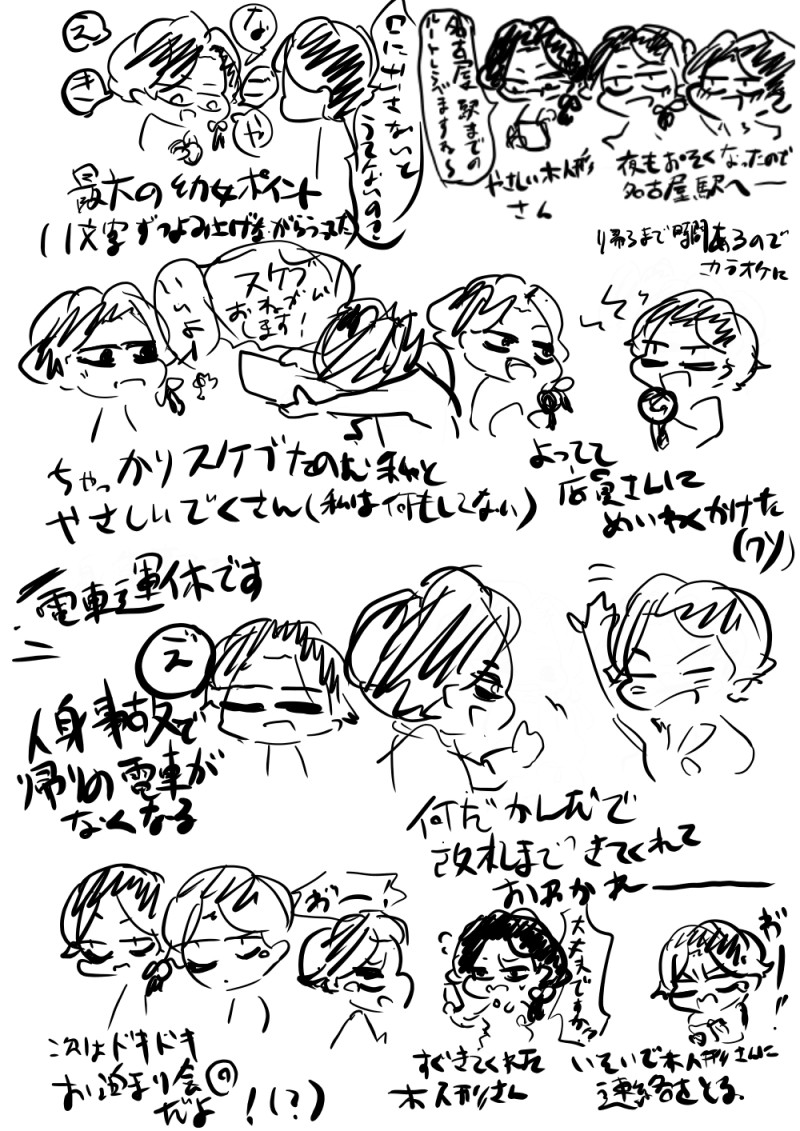 夜もおそくなったので
名古屋駅へー
名古屋駅までの
ルートしらべますね〜
やさしい木人形
さん
口に出さないと
うてないの?
な
ご
や
え
き
最大の幼女ポイント
(1文字ずつよみ上げながらうってた)
帰るまで時間あるので
カラオケに
よってて
店員さんに
めいわくかけた
(クソ)
スケブ
おねがい
します!
いいよ!
ちゃっかりスケブたのむ私と
やさしいでくさん(私は何もしてない)
何だかんだで
改札まできてくれて
おわかれー
電車運休です
え
人身事故で
帰りの電車が
なくなる
お゛ー!!
いそいで木人形さんに
連絡をとる
大丈夫ですか?
すぐきてくれた
木人形さん
お゛ー!
次はドキドキ
お泊まり会
だよ!(?)